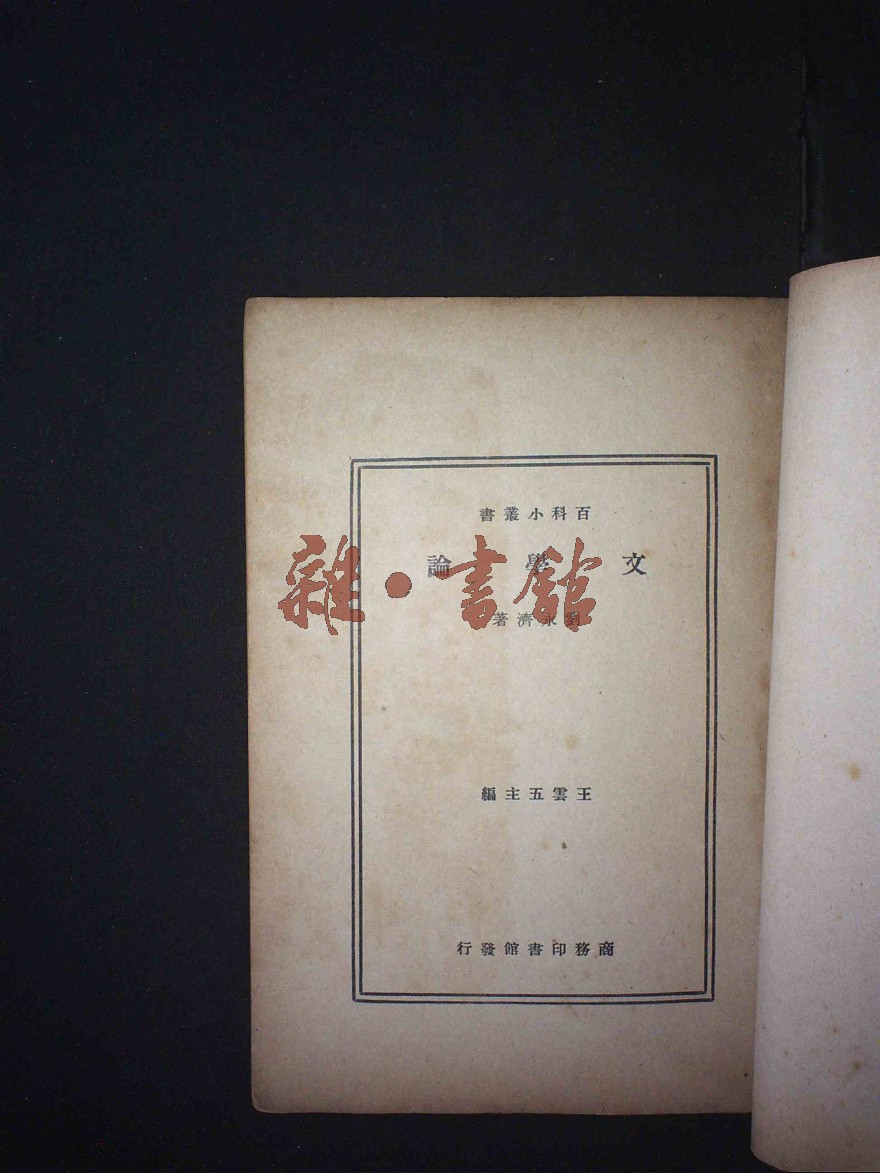 百科小叢書
文學論
劉永濟著
王雲五主編
商務印書館發行
雜·書館